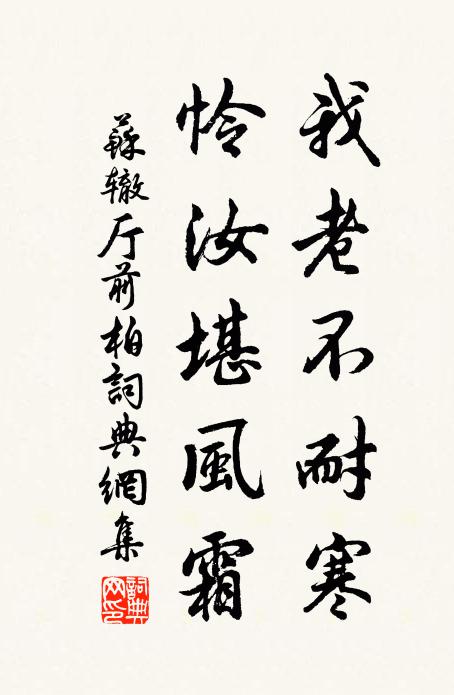 我老不耐寒
怜汝堪風霜
蘇辙厅前柏詞典網集
詞典网印